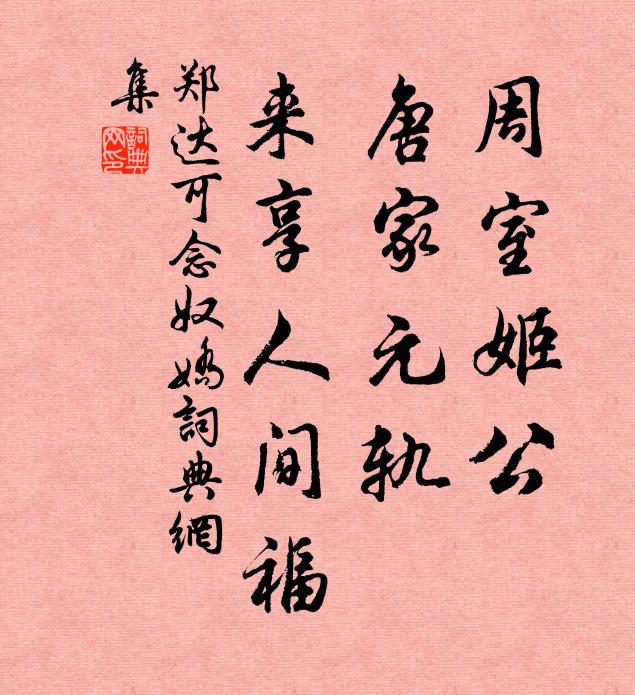 周室姬公
唐家元轨
来享人间福
郑达可念奴嬌詞典網
集
詞典网印